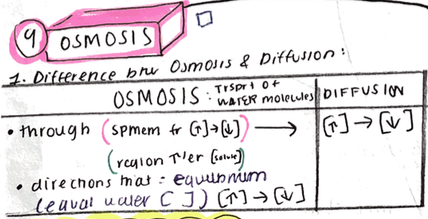 9 OSMOSIS
1. Difference btw Osmosis & Diffusion:
OSMOSIS: Trsprt of WATER molecules | DIFFUSION
• through (spmem fr [↑]→[↓]) → [↑]→[↓]
(region ↑'er [solute])
• directions that: equilibrium
(equal water [ ]) [↑]→[↓]